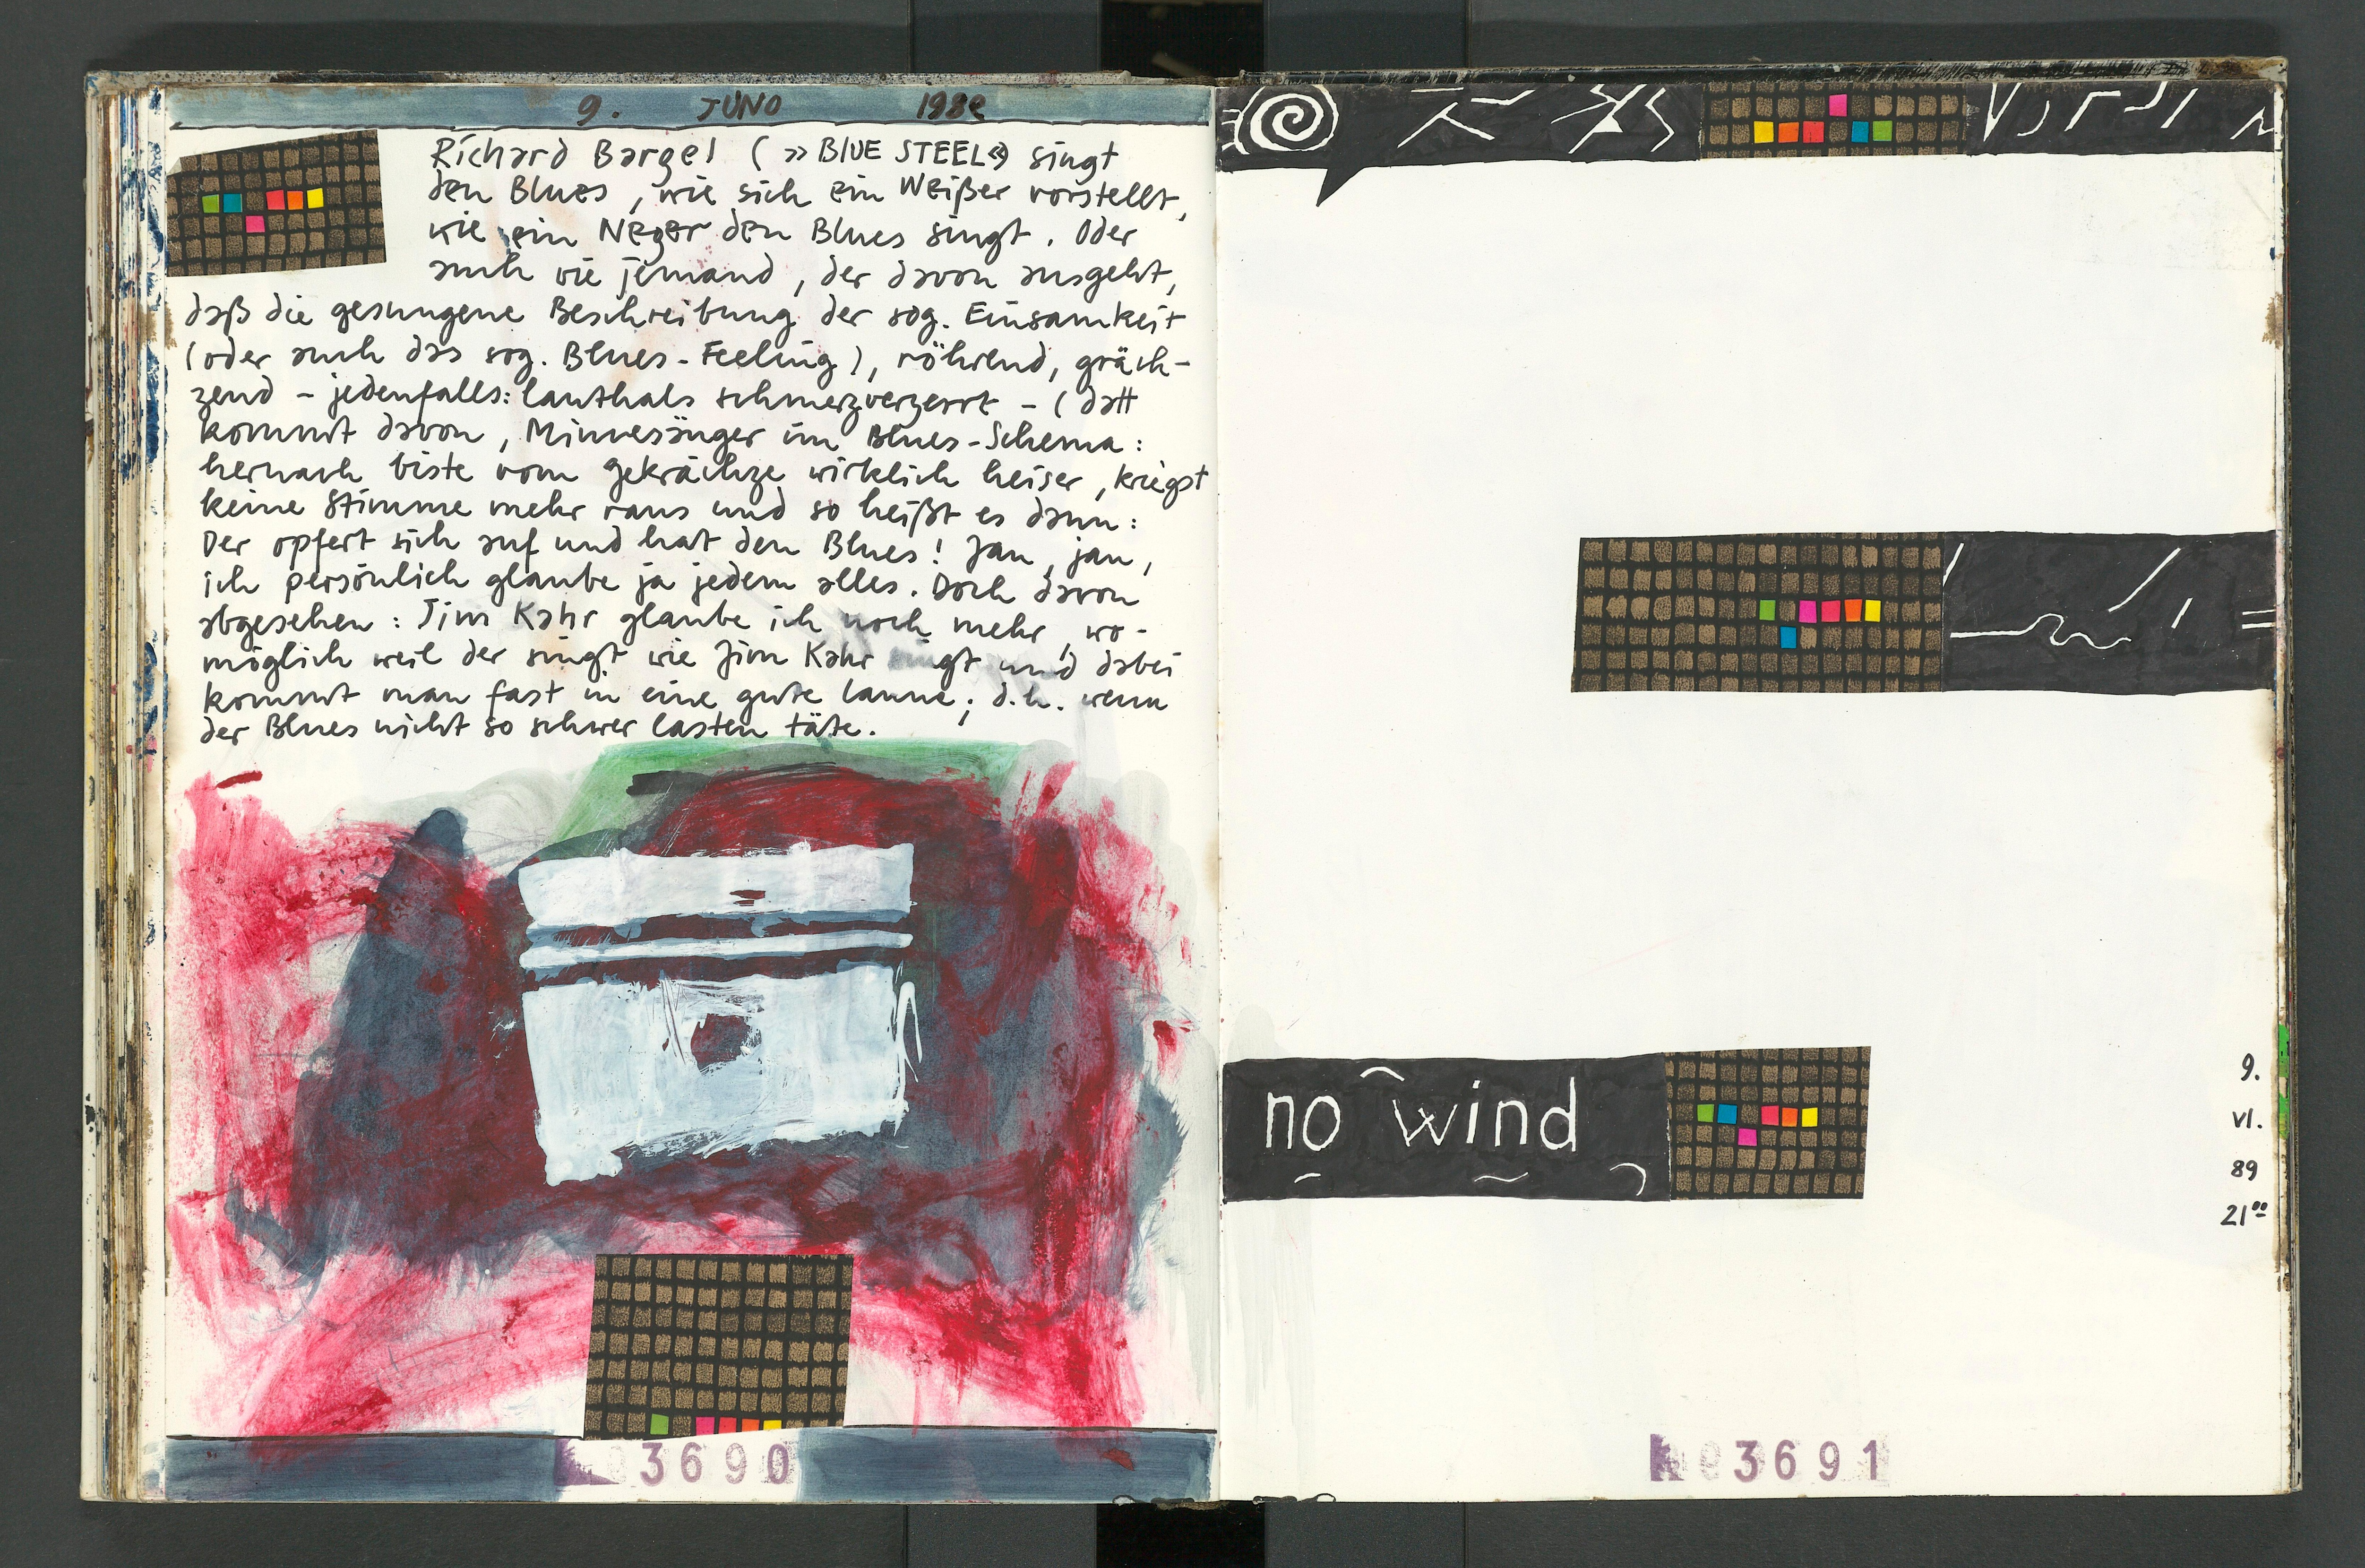 9. JUNO 198e
Richard Bargel (»BLUE STEEL«) singt
den Blues, wie sich ein Weißer vorstellt,
wie ein Neger den Blues singt. Oder
auch wie jemand, der davon ausgeht,
daß die gesungene Beschreibung der sog. Einsamkeit
(oder auch das sog. Blues-Feeling), röhrend, gräch-
zend – jedenfalls: lauthals schmerzverzerrt – (datt
kommt davon, Minnesänger im Blues-Schema:
hernach biste vom Gekrächze wirklich heiser, kriegst
keine Stimme mehr raus und so heißt es dann:
Der opfert sich auf und hat den Blues! Jau, jau,
ich persönlich glaube ja jedem alles. Doch davon
abgesehen: Jim Kahr glaube ich noch mehr, wo-
möglich weil der singt wie Jim Kahr singt und dabei
kommt man fast in eine gute Laune; d.h. wenn
der Blues nicht so schwer lasten täte.
3690
no wind
9.
VI.
89
21⁰⁰
3691